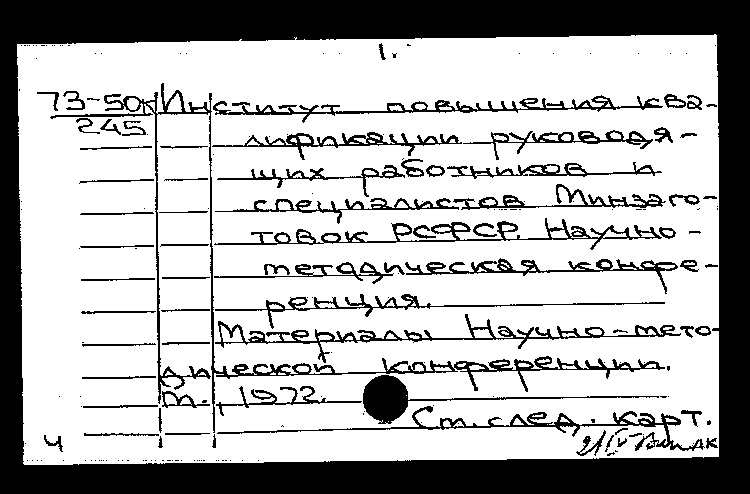 1.
73-50к Институт повышения ква-
245
лификации руководя-
щих работников и
специалистов Минзаго-
товок РСФСР. Научно-
методическая конфе-
ренция.
Материалы Научно-мето-
дической конференции.
М., 1972.
Ст. след. карт.
4